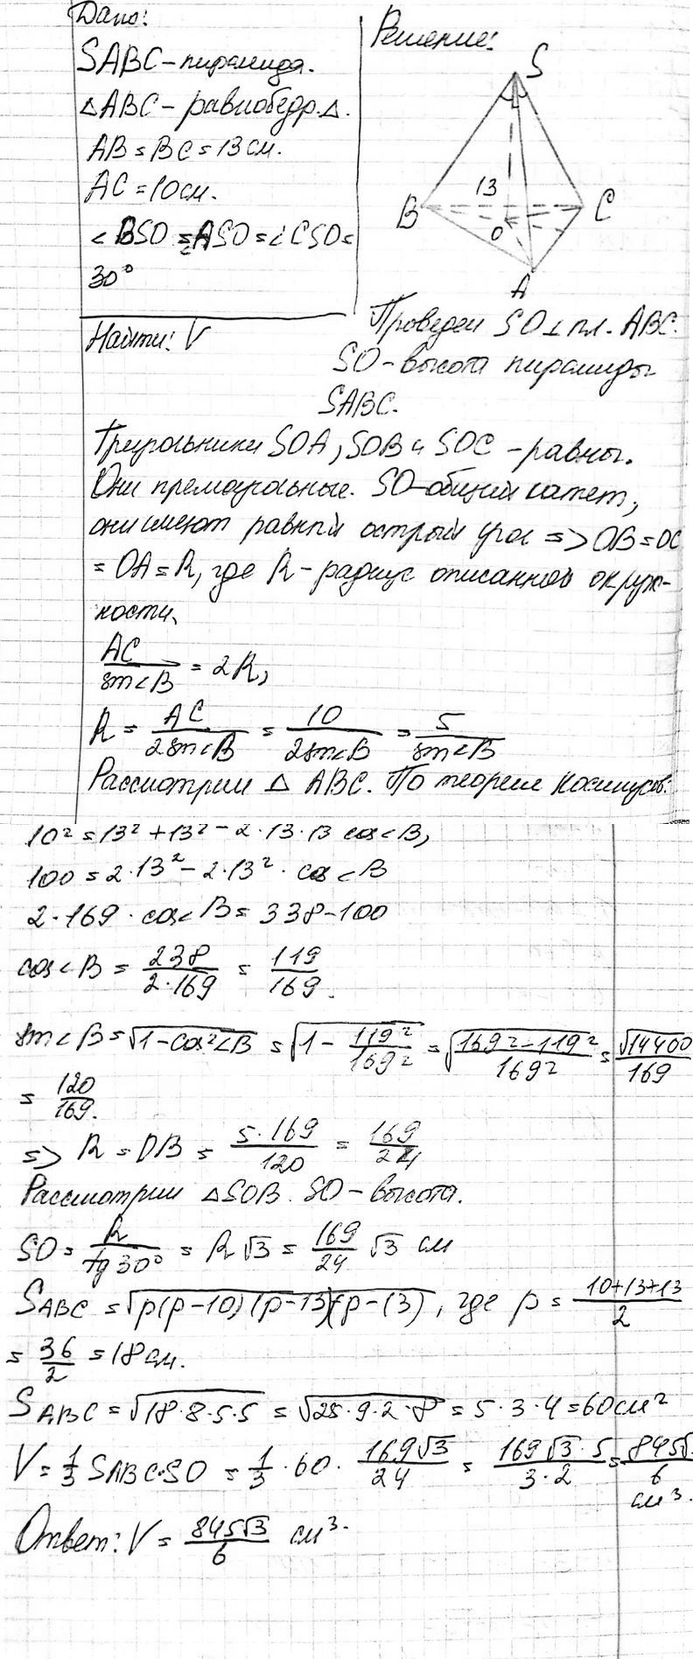 Дано:
SABC - пирамида.
△ABC - равнобедр. △.
AB = BC = 13 см.
AC = 10 см.
∠BSO = ∠ASO = ∠CSO =
30°
Найти: V
Решение:
S
B
13
C
O
A
Проведем SO ⊥ пл. ABC.
SO - высота пирамиды
SABC.
Треугольники SOA, SOB и SOC - равны.
Они прямоугольные. SO - общий катет,
они имеют равный острый угол => OB = OC
= OA = R, где R - радиус описанной окруж-
ности.
AC / sin∠B = 2R,
R = AC / 2sin∠B = 10 / 2sin∠B = 5 / sin∠B
Рассмотрим △ ABC. По теореме косинусов:
10² = 13² + 13² - 2·13·13 cos∠B,
100 = 2·13² - 2·13² · cos∠B
2·169 · cos∠B = 338 - 100
cos∠B = 238 / 2·169 = 119 / 169.
sin∠B = √(1 - cos²∠B) = √(1 - 119²/169²) = √((169² - 119²)/169²) = √14400 / 169
= 120 / 169.
=> R = OB = 5·169 / 120 = 169 / 24
Рассмотрим △SOB. SO - высота.
SO = R / tg 30° = R√3 = 169/24 √3 см
SABC = √(p(p-10)(p-13)(p-13)), где p = 10+13+13 / 2
= 36/2 = 18 см.
SABC = √(18·8·5·5) = √(25·9·2·8) = 5·3·4 = 60 см²
V = 1/3 SABC·SO = 1/3 · 60 · 169√3 / 24 = 169√3·5 / 3·2 = 845√ / 6
см³.
Ответ: V = 845√3 / 6 см³.